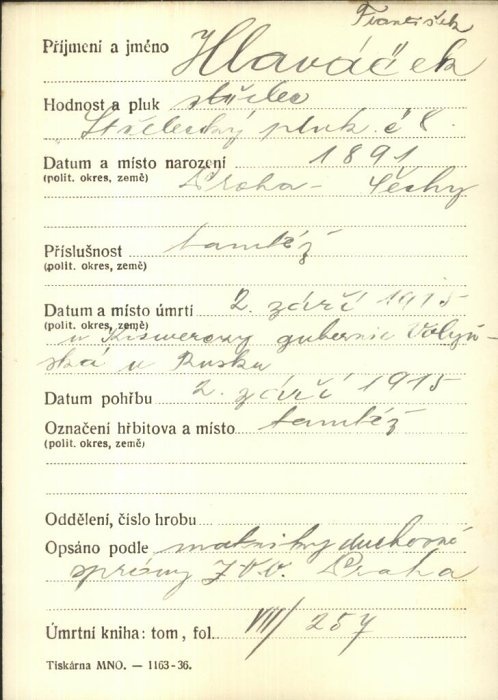 František
Příjmení a jméno Hlaváček
Hodnost a pluk střelec
Střelecký pluk č 8.
Datum a místo narození 1891
(polit. okres, země) Praha - Čechy
Příslušnost tamtéž
(polit. okres, země)
Datum a místo úmrtí 2. září 1915
(polit. okres, země) u gubernie Volyň-
ská v Rusku
Datum pohřbu 2. září 1915
Označení hřbitova a místo tamtéž
(polit. okres, země)
Oddělení, číslo hrobu
Opsáno podle matriky duchovní
správy Praha
Úmrtní kniha: tom, fol. VIII/257
Tiskárna MNO. — 1163-36.